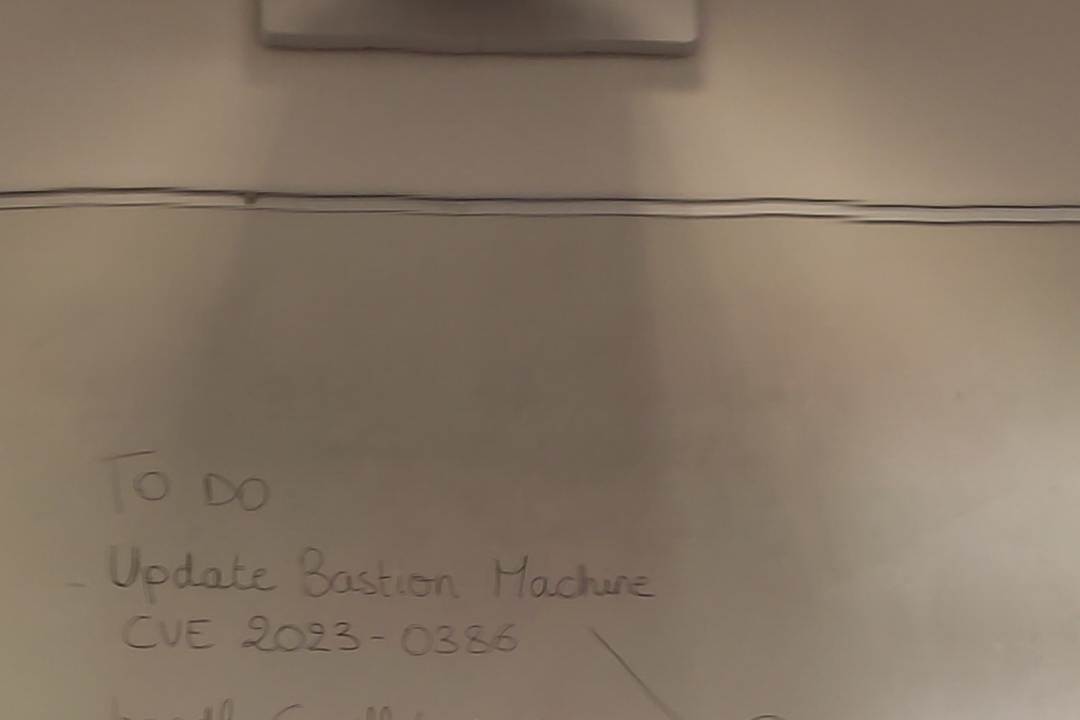 TO DO
- Update Bastion Machine
CVE 2023-0386